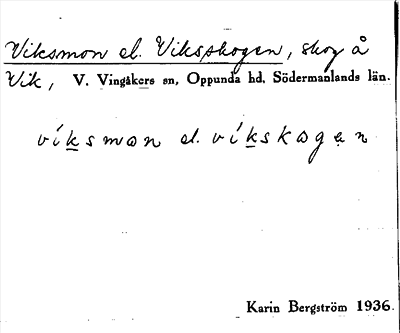 Viksmon el. Vikskogen, skog å
Vik, V. Vingåkers sn, Oppunda hd, Södermanlands län.
víksmon el. víkskogen
Karin Bergström 1936.